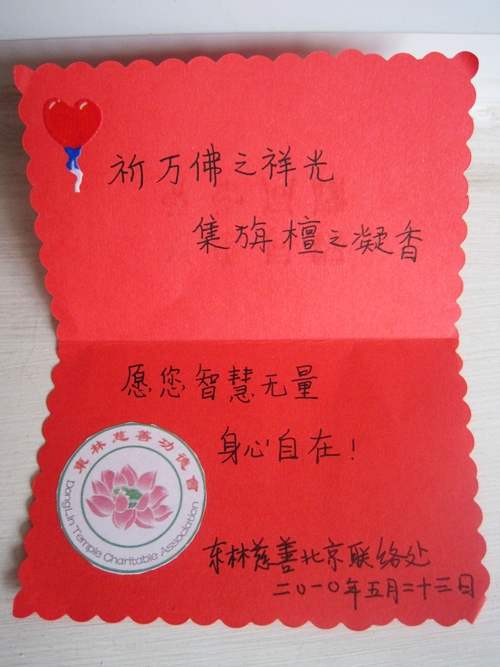 祈万佛之祥光
集旃檀之凝香
愿您智慧无量
身心自在！
東林慈善功德會
DongLin Temple Charitable Association
东林慈善北京联络处
二〇一〇年五月二十三日